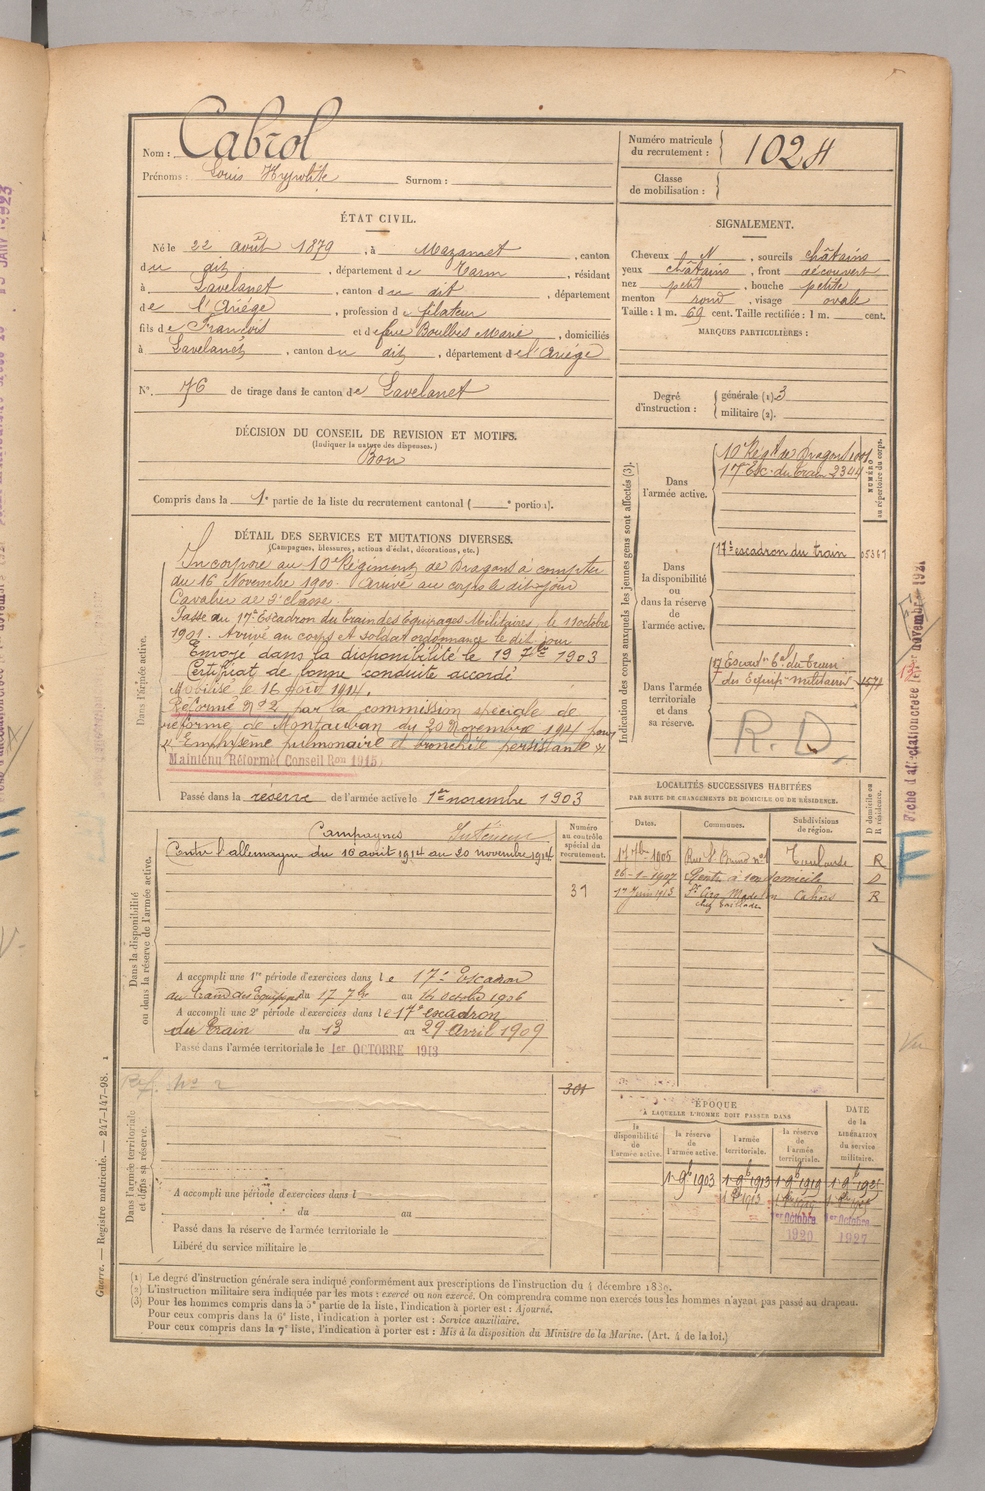 Nom : Cabrol
Prénoms : Louis Hypolite Surnom :
Numéro matricule du recrutement : 1024
Classe de mobilisation :
ÉTAT CIVIL.
Né le 22 août 1879 , à Mazamet , canton
du dit , département de Tarn , résidant
à Lavelanet , canton du dit , département
de l'Ariége , profession de filateur
fils de François et de feue Boulbès Marie , domiciliés
à Lavelanet , canton du dit , département de l'Ariége
N°. 76 de tirage dans le canton de Lavelanet
SIGNALEMENT.
Cheveux N , sourcils châtains
yeux châtains , front découvert
nez petit , bouche petite
menton rond , visage ovale
Taille : 1 m. 69 cent. Taille rectifiée : 1 m. cent.
MARQUES PARTICULIÈRES :
Degré d'instruction : générale (1) 3
militaire (2).
DÉCISION DU CONSEIL DE REVISION ET MOTIFS.
(Indiquer la nature des dispenses.)
Bon
Compris dans la 1e partie de la liste du recrutement cantonal ( e portion).
DÉTAIL DES SERVICES ET MUTATIONS DIVERSES.
(Campagnes, blessures, actions d'éclat, décorations, etc.)
Dans l'armée active.
Incorporé au 10e Régiment de Dragons à compter
du 16 Novembre 1900. Arrivé au corps le dit jour
Cavalier de 2e classe.
Passé au 17e Escadron du Train des Equipages Militaires, le 11 octobre
1901. Arrivé au corps et soldat ordonnance le dit jour
Envoyé dans la disponibilité le 19 7bre 1903
Certificat de bonne conduite accordé
Mobilisé le 16 Août 1914.
Réformé N° 2 par la commission spéciale de
réforme de Montauban du 20 Novembre 1914 pour
"Emphysème pulmonaire et bronchite persistante"
Maintenu Réformé Conseil Ron 1915.
Passé dans la réserve de l'armée active le 1er novembre 1903
Indication des corps auxquels les jeunes gens sont affectés (3).
NUMÉRO au répertoire du corps.
Dans l'armée active.
10e Régt de Dragons 1001
17e Esc. du Train 2344
Dans la disponibilité ou dans la réserve de l'armée active.
17e escadron du train 05367
Dans l'armée territoriale et dans sa réserve.
17 Escad. tal du Train
des Equip. militaires 1572
R.D.
Dans la disponibilité ou dans la réserve de l'armée active.
Campagnes Intérieur
Contre l'allemagne du 16 août 1914 au 20 novembre 1914
Numéro au contrôle spécial du recrutement.
31
A accompli une 1re période d'exercices dans le 17e Escadron
du Train des Equipages du 17 7bre au 14 octobre 1906
A accompli une 2e période d'exercices dans le 17e escadron
du Train du 13 au 29 Avril 1909
Passé dans l'armée territoriale le 1er OCTOBRE 1913
LOCALITÉS SUCCESSIVES HABITÉES
PAR SUITE DE CHANGEMENTS DE DOMICILE OU DE RÉSIDENCE.
Dates. Communes. Subdivisions de région. D domicile ou R résidence.
Toulouse R
26-1-1907 Rentré à son domicile D
1er Juin 1913 Cahors R
Dans l'armée territoriale et dans sa réserve.
Réf. N° 2
301
A accompli une période d'exercices dans l
du au
Passé dans la réserve de l'armée territoriale le
Libéré du service militaire le
ÉPOQUE
À LAQUELLE L'HOMME DOIT PASSER DANS
la disponibilité de l'armée active.
la réserve de l'armée active.
l'armée territoriale.
la réserve de l'armée territoriale.
DATE de la LIBÉRATION du service militaire.
1-9b 1903 1-9b 1913 1-9b 1919 1-9b 1925
1er Octobre 1920 1er Octobre 1927
(1) Le degré d'instruction générale sera indiqué conformément aux prescriptions de l'instruction du 4 décembre 1889.
(2) L'instruction militaire sera indiquée par les mots : exercé ou non exercé. On comprendra comme non exercés tous les hommes n'ayant pas passé au drapeau.
(3) Pour les hommes compris dans la 5e partie de la liste, l'indication à porter est : Ajourné.
Pour ceux compris dans la 6e liste, l'indication à porter est : Service auxiliaire.
Pour ceux compris dans la 7e liste, l'indication à porter est : Mis à la disposition du Ministre de la Marine. (Art. 4 de la loi.)
Guerre. — Registre matricule. — 247-147-98. 1